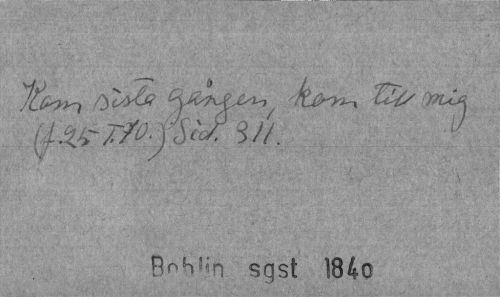 Kom sista gången, kom till mig
(f.25 T.70.) Sid. 311.
Bohlin sgst 1840